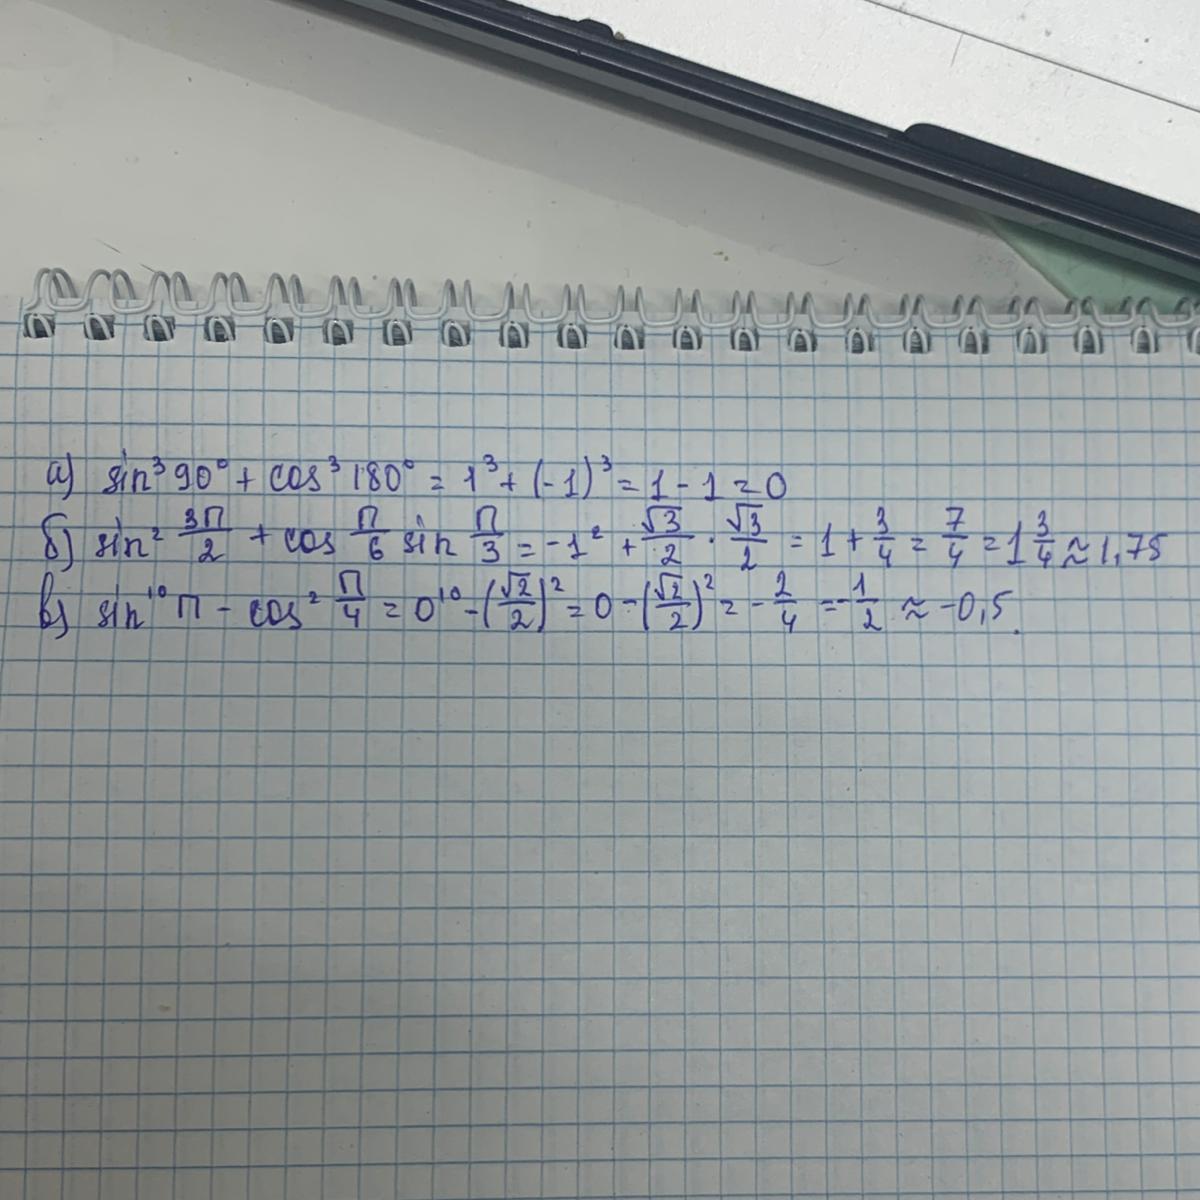 а) sin³90° + cos³180° = 1³ + (-1)³ = 1 - 1 = 0
б) sin² 3π/2 + cos π/6 sin π/3 = -1² + √3/2 · √3/2 = 1 + 3/4 = 7/4 = 1 3/4 ≈ 1,75
в) sin¹⁰π - cos² π/4 = 0¹⁰ - (√2/2)² = 0 - (√2/2)² = - 2/4 = - 1/2 ≈ -0,5.